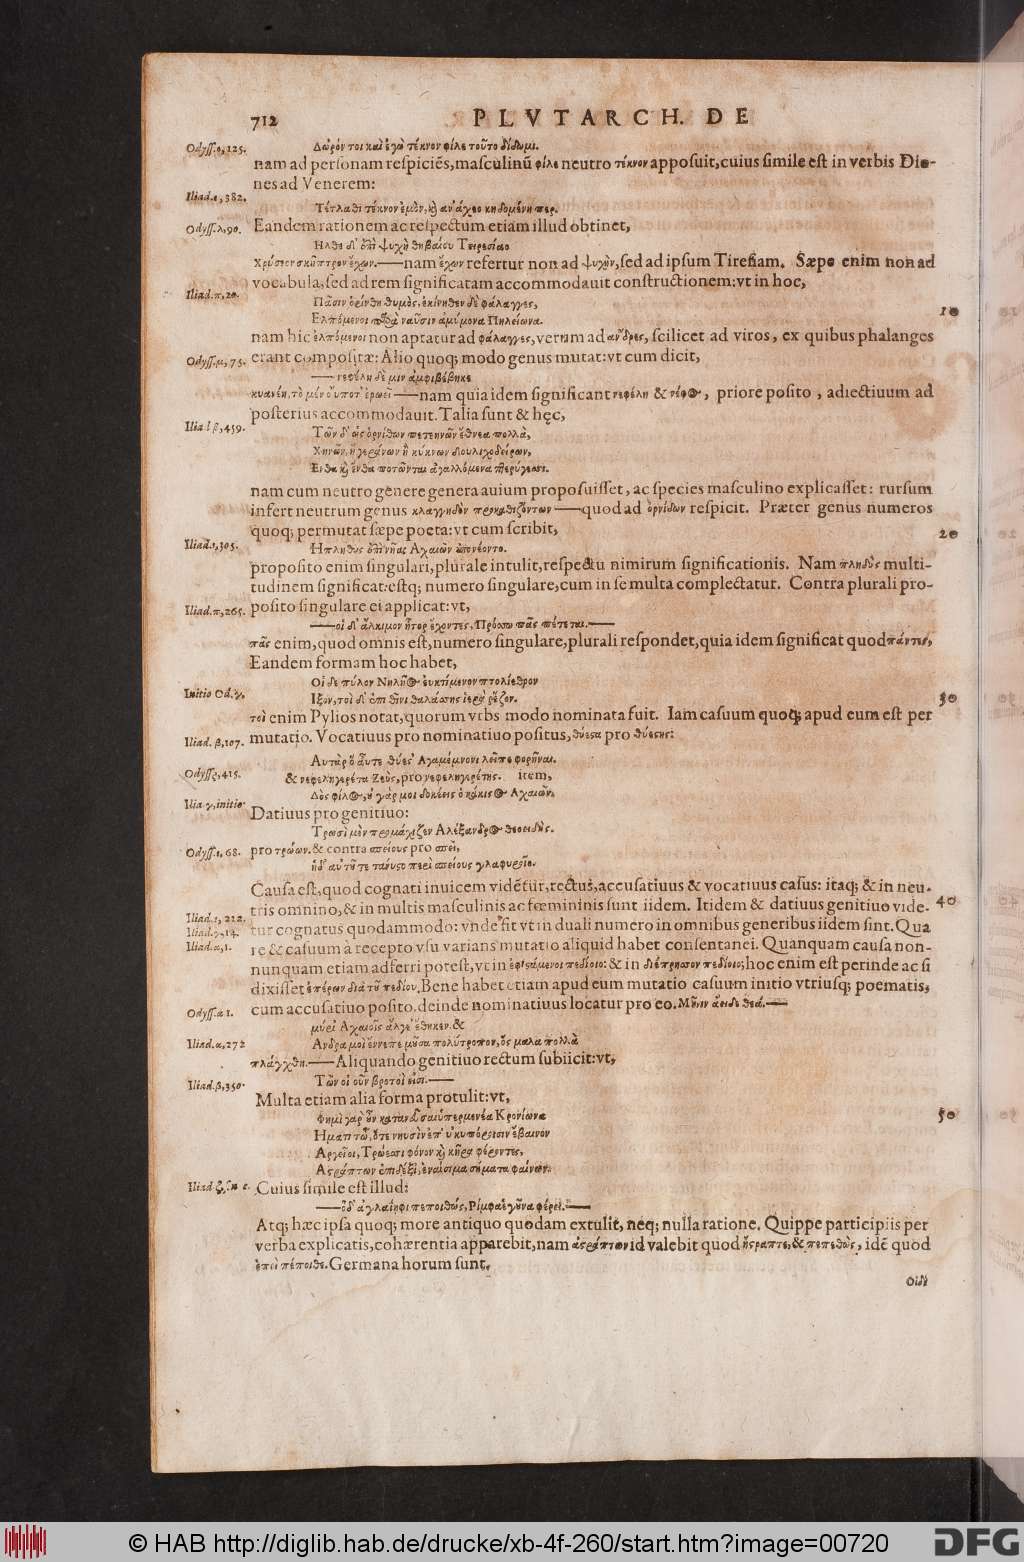 712 PLVTARCH. DE
Odyss.ο,125. Δῶρόν τοι καὶ ἐγὼ τέκνον φίλε τοῦτο δίδωμι.
nam ad personam respiciẽs, masculinũ φίλε neutro τέκνον apposuit, cuius simile est in verbis Dio-
nes ad Venerem:
Iliad.ε,382. Τέτλαθι τέκνον ἐμὸν, καὶ ἀνάχεο κηδομένη περ.
Odyss.λ,90. Eandem rationem ac respectum etiam illud obtinet,
Ηλθε δ' ἐπὶ ψυχὴ θηβαίου Τειρεσίαο
Χρύσεον σκῆπτρον ἔχων.—nam ἔχων refertur non ad ψυχὴν, sed ad ipsum Tiresiam. Sæpe enim non ad
vocabula, sed ad rem significatam accommodauit constructionem: vt in hoc,
Iliad.π,20. Πᾶσιν ὀρίνθη θυμὸς, ἐκίνηθεν δὲ φάλαγγες, 10
Ελπόμενοι παρὰ ναῦσιν ἀμύμονα Πηλείωνα.
nam hic ἐλπόμενοι non aptatur ad φάλαγγες, verum ad ἄνδρες, scilicet ad viros, ex quibus phalanges
Odyss.μ,75. erant compositæ: Alio quoq; modo genus mutat: vt cum dicit,
—νεφέλη δέ μιν ἀμφιβέβηκε
κυανέη, τὸ μὲν οὔποτ' ἐρωεῖ—nam quia idem significant νεφέλη & νέφος, priore posito, adiectiuum ad
posterius accommodauit. Talia sunt & hęc,
Ilia l β,459. Τῶν δ' ὡς ὀρνίθων πετεηνῶν ἔθνεα πολλὰ,
Χηνῶν, ἢ γεράνων ἢ κύκνων δουλιχοδείρων,
Ενθα καὶ ἔνθα ποτῶνται ἀγαλλόμενα πτερύγεσσι.
nam cum neutro genere genera auium proposuisset, ac species masculino explicasset: rursum
infert neutrum genus κλαγγηδὸν προκαθιζόντων—quod ad ὀρνίθων respicit. Præter genus numeros
quoq; permutat sæpe poeta: vt cum scribit, 20
Iliad.ι,305. Η πληθὺς ἐπὶ νῆας Αχαιῶν ἀπονέοντο.
proposito enim singulari, plurale intulit, respectu nimirum significationis. Nam πληθὺς multi-
tudinem significat: estq; numero singulare, cum in se multa complectatur. Contra plurali pro-
Iliad.π,265. posito singulare ei applicat: vt,
—οἱ δ' ἄλκιμον ἦτορ ἔχοντες, Πρόσσω πᾶς πέτεται.—
πᾶς enim, quod omnis est, numero singulare, plurali respondet, quia idem significat quod πάντες,
Eandem formam hoc habet,
Οἱ δὲ πύλον Νηλῆος ἐυκτίμενον πτολίεθρον
Initio Od.γ. Ιξον, τοὶ δ' ἐπὶ θῖνι θαλάσσης ἱερὰ ῥέζον. 30
τοὶ enim Pylios notat, quorum vrbs modo nominata fuit. Iam casuum quoq; apud eum est per
Iliad.β,107. mutatio. Vocatiuus pro nominatiuo positus, θύεσα pro θύεσης:
Αυτὰρ ὃ αὖτε θύες' Αγαμέμνονι λεῖπε φορῆναι.
Odyss.ρ,415. & νεφεληγερέτα Ζεὺς, pro νεφεληγερέτης. item,
Δὸς φίλος, ὐ γάρ μοι δοκέεις ὁ κάκιστος Αχαιῶν.
Ilia.γ,initio. Datiuus pro genitiuo:
Τρωσὶ μὲν προμάχιζεν Αλέξανδρος θεοειδής.
Odyss.ε,68. pro τρώων. & contra σπείους pro σπεῖι,
ἡδ' αὐτῦ τετάνυστο περὶ σπείους γλαφυροῖο.
Causa est, quod cognati inuicem vidẽtur, rectus, accusatiuus & vocatiuus casus: itaq; & in neu-
tris omnino, & in multis masculinis ac fœmininis sunt iidem. Itidem & datiuus genitiuo vide- 40
Iliad.ι,212. tur cognatus quodammodo: vnde fit vt in duali numero in omnibus generibus iidem sint. Qua
Iliad.γ,14.
Iliad.α,1. re & casuum à recepto vsu varians mutatio aliquid habet consentanei. Quanquam causa non-
nunquam etiam adferri potest, vt in ἐφιςάμενοι πεδίοιο: & in διέπρησσον πεδίοιο; hoc enim est perinde ac si
dixisset ἐπέρων διὰ τῦ πεδίου. Bene habet etiam apud eum mutatio casuum initio vtriusq; poematis,
Odyss.α 1. cum accusatiuo posito, deinde nominatiuus locatur pro eo. Μῆνιν ἄειδε θεά.—
μυρί Αχαιοῖς ἄλγε' ἔθηκεν. &
Iliad.α,272 Ανδρα μοι ἔννεπε μῦσα πολύτροπον, ὃς μαλα πολλὰ
πλάγχθη.—Aliquando genitiuo rectum subiicit: vt,
Iliad.β,350. Τῶν οἱ νῦν βροτοὶ εἰσι.—
Multa etiam alia forma protulit: vt,
Φημὶ γὰρ ὖν κατανεῦσαι ὑπερμενέα Κρονίωνα 50
Ηματι τῷ, ὅτε νηυσὶν ἐπ' ὠκυπόροισιν ἔβαινον
Αργεῖοι, Τρώεσσι φόνον καὶ κῆρα φέροντες,
Αςράπτων ἐπιδέξι', ἐναίσιμα σήματα φαίνων.
Cuius simile est illud:
—ὃ δ' ἀγλαΐηφι πεποιθὼς, Ρίμφα ἑ γῦνα φέρει.—
Atq; hæc ipsa quoq; more antiquo quodam extulit, neq; nulla ratione. Quippe participiis per
verba explicatis, cohærentia apparebit, nam ἀςράπτων id valebit quod ἤςραπτε, & πεπειθὼς, idẽ quod
ἐπεὶ πέποιθε. Germana horum sunt.
Οἱ δὲ
© HAB http://diglib.hab.de/drucke/xb-4f-260/start.htm?image=00720
DFG